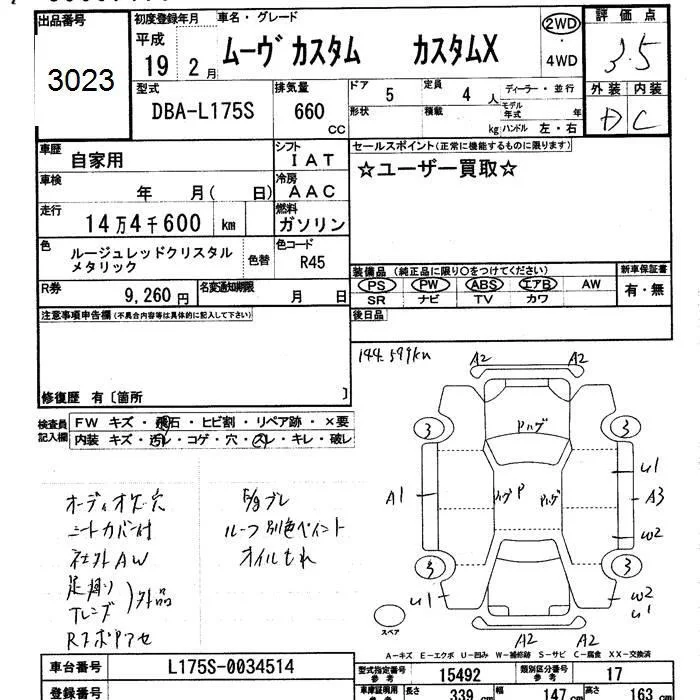 出品番号
3023
初度登録年月
平成
19 2 月
車名・グレード
ムーヴ カスタム カスタムX
2WD
・
4WD
評価点
3.5
外装 内装
D C
型式
DBA-L175S
排気量
660
CC
ドア
5
定員
4 人
形状
積載
kg
ディーラー・並行
モデル
年式
年
ハンドル 左・右
車歴
自家用
シフト
IAT
車検
年 月( 日)
冷房
AAC
走行
14万4千600 km
燃料
ガソリン
色
ルージュレッドクリスタル
メタリック
色替
色コード
R45
R券
9,260 円
名変通知期限
月 日
セールスポイント(正常に機能するものに限ります)
☆ユーザー買取☆
装備品(純正品に限り○をつけてください)
PS PW ABS エアB AW
SR ナビ TV カワ
新車保証書
有・無
注意事項申告欄(不具合内容等は具体的に記入して下さい)
後日品
修復歴 有〔箇所 〕
検査員
記入欄
FW キズ・飛石・ヒビ割・リペア跡・×要
内装 キズ・汚レ・コゲ・穴・スレ・キレ・破レ
オーディオケース穴
シートカバー付
社外AW
足廻り
Rドアポケ
外品
ルーフ別色ペイント
オイルもれ
144,599km
A2 A2
3 3
Pハゲ
U1
A1
ハゲ P Pハゲ
A3
W2
3 3
U1
W2
U1
A2 A2
スペア
A-キズ E-エクボ U-凹み W-補修跡 S-サビ C-腐食 XX-交換済
車台番号
L175S-0034514
登録番号
型式指定番号
参考
15492
類別区分番号
参考
17
車庫証明用
参考
長さ
339 cm
幅
147 cm
高さ
163 cm